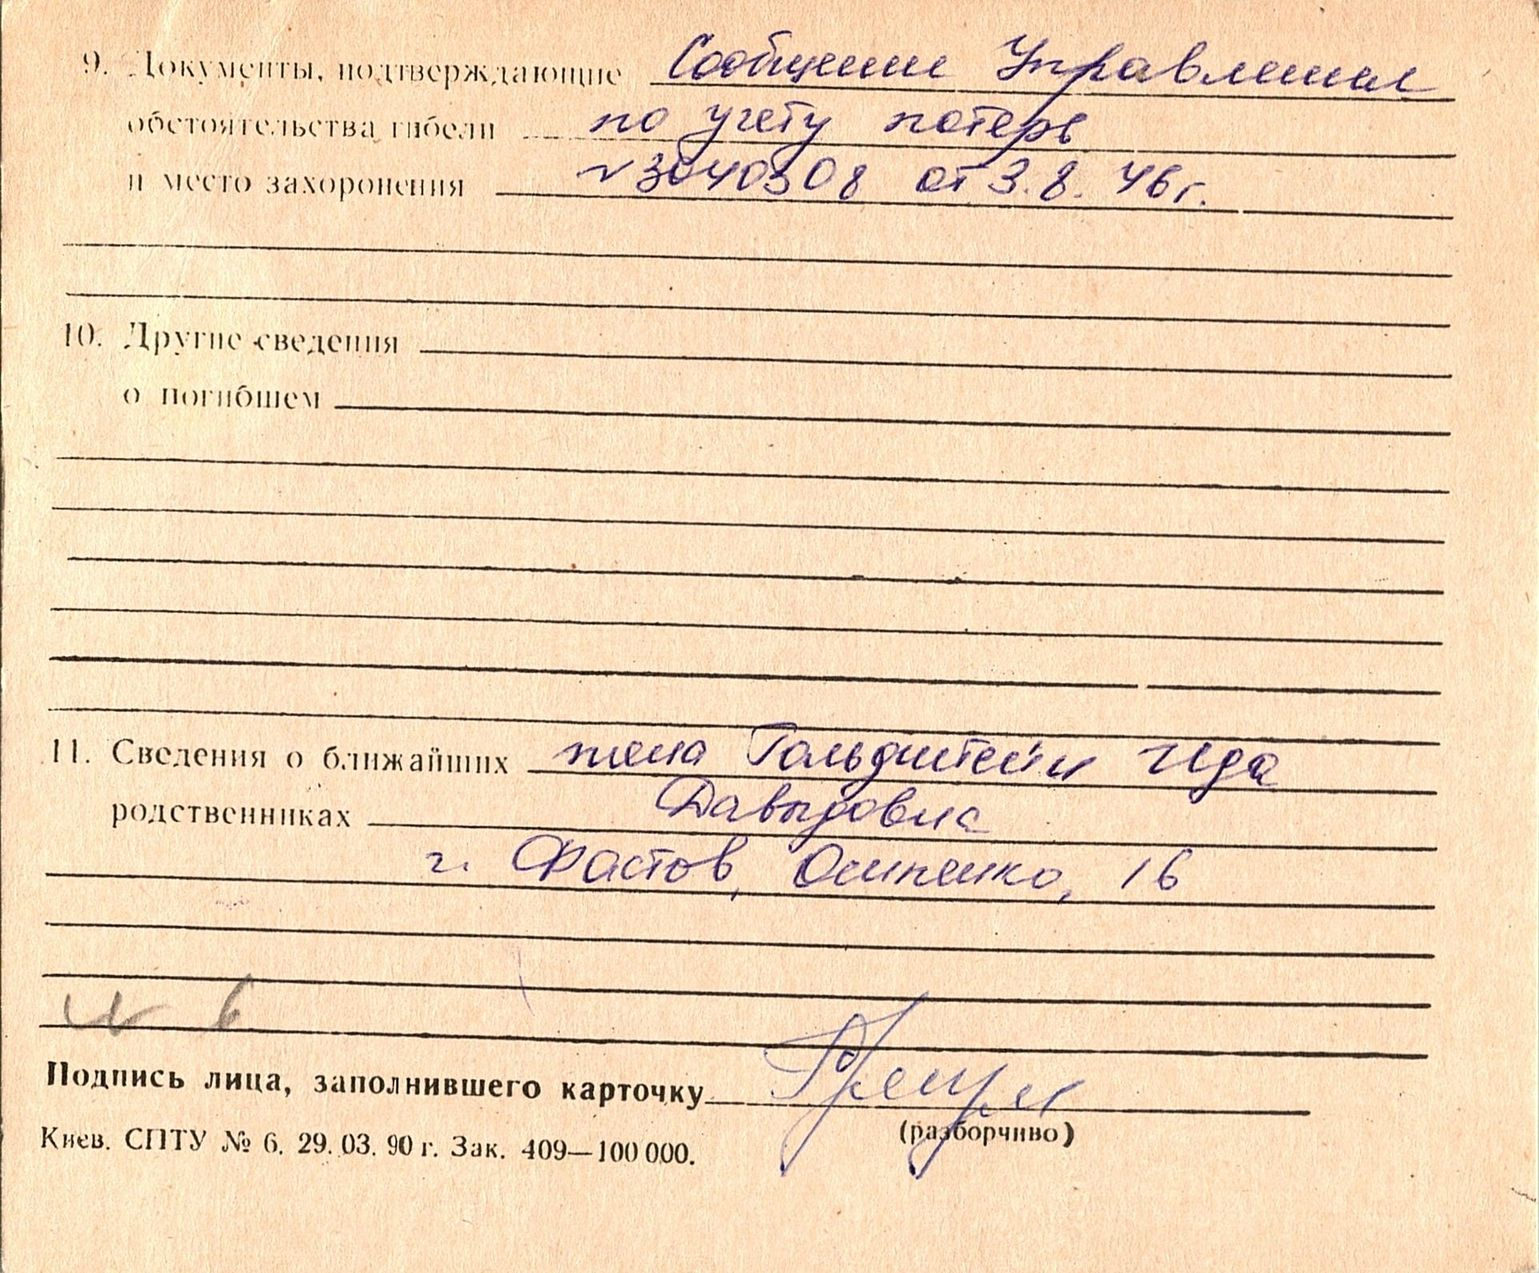 9. Документы, подтверждающие Сообщение Управления
обстоятельства гибели по учету потерь
и место захоронения №3040308 от 3.8.46г.
10. Другие сведения
о погибшем
11. Сведения о ближайших жена Гольдштейн Ида
родственниках Давыдовна
г. Фастов, Осипенко, 16
Подпись лица, заполнившего карточку
(разборчиво)
Киев. СПТУ № 6. 29.03.90 г. Зак. 409—100 000.